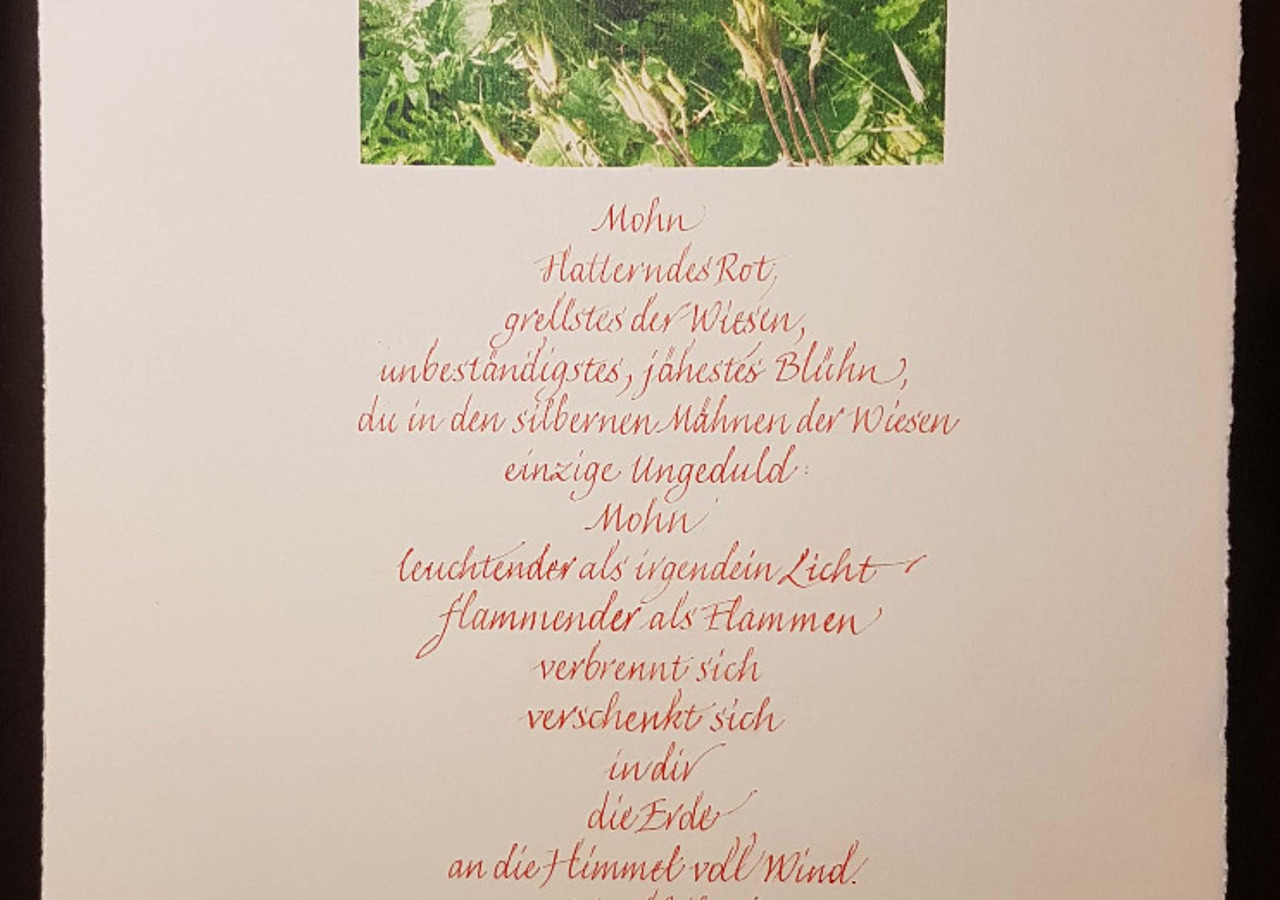 Mohn
Flatterndes Rot,
grellstes der Wiesen,
unbeständigstes, jähestes Blühn,
du in den silbernen Mähnen der Wiesen
einzige Ungeduld:
Mohn
leuchtender als irgendein Licht
flammender als Flammen
verbrennt sich
verschenkt sich
in dir
die Erde
an die Himmel voll Wind.